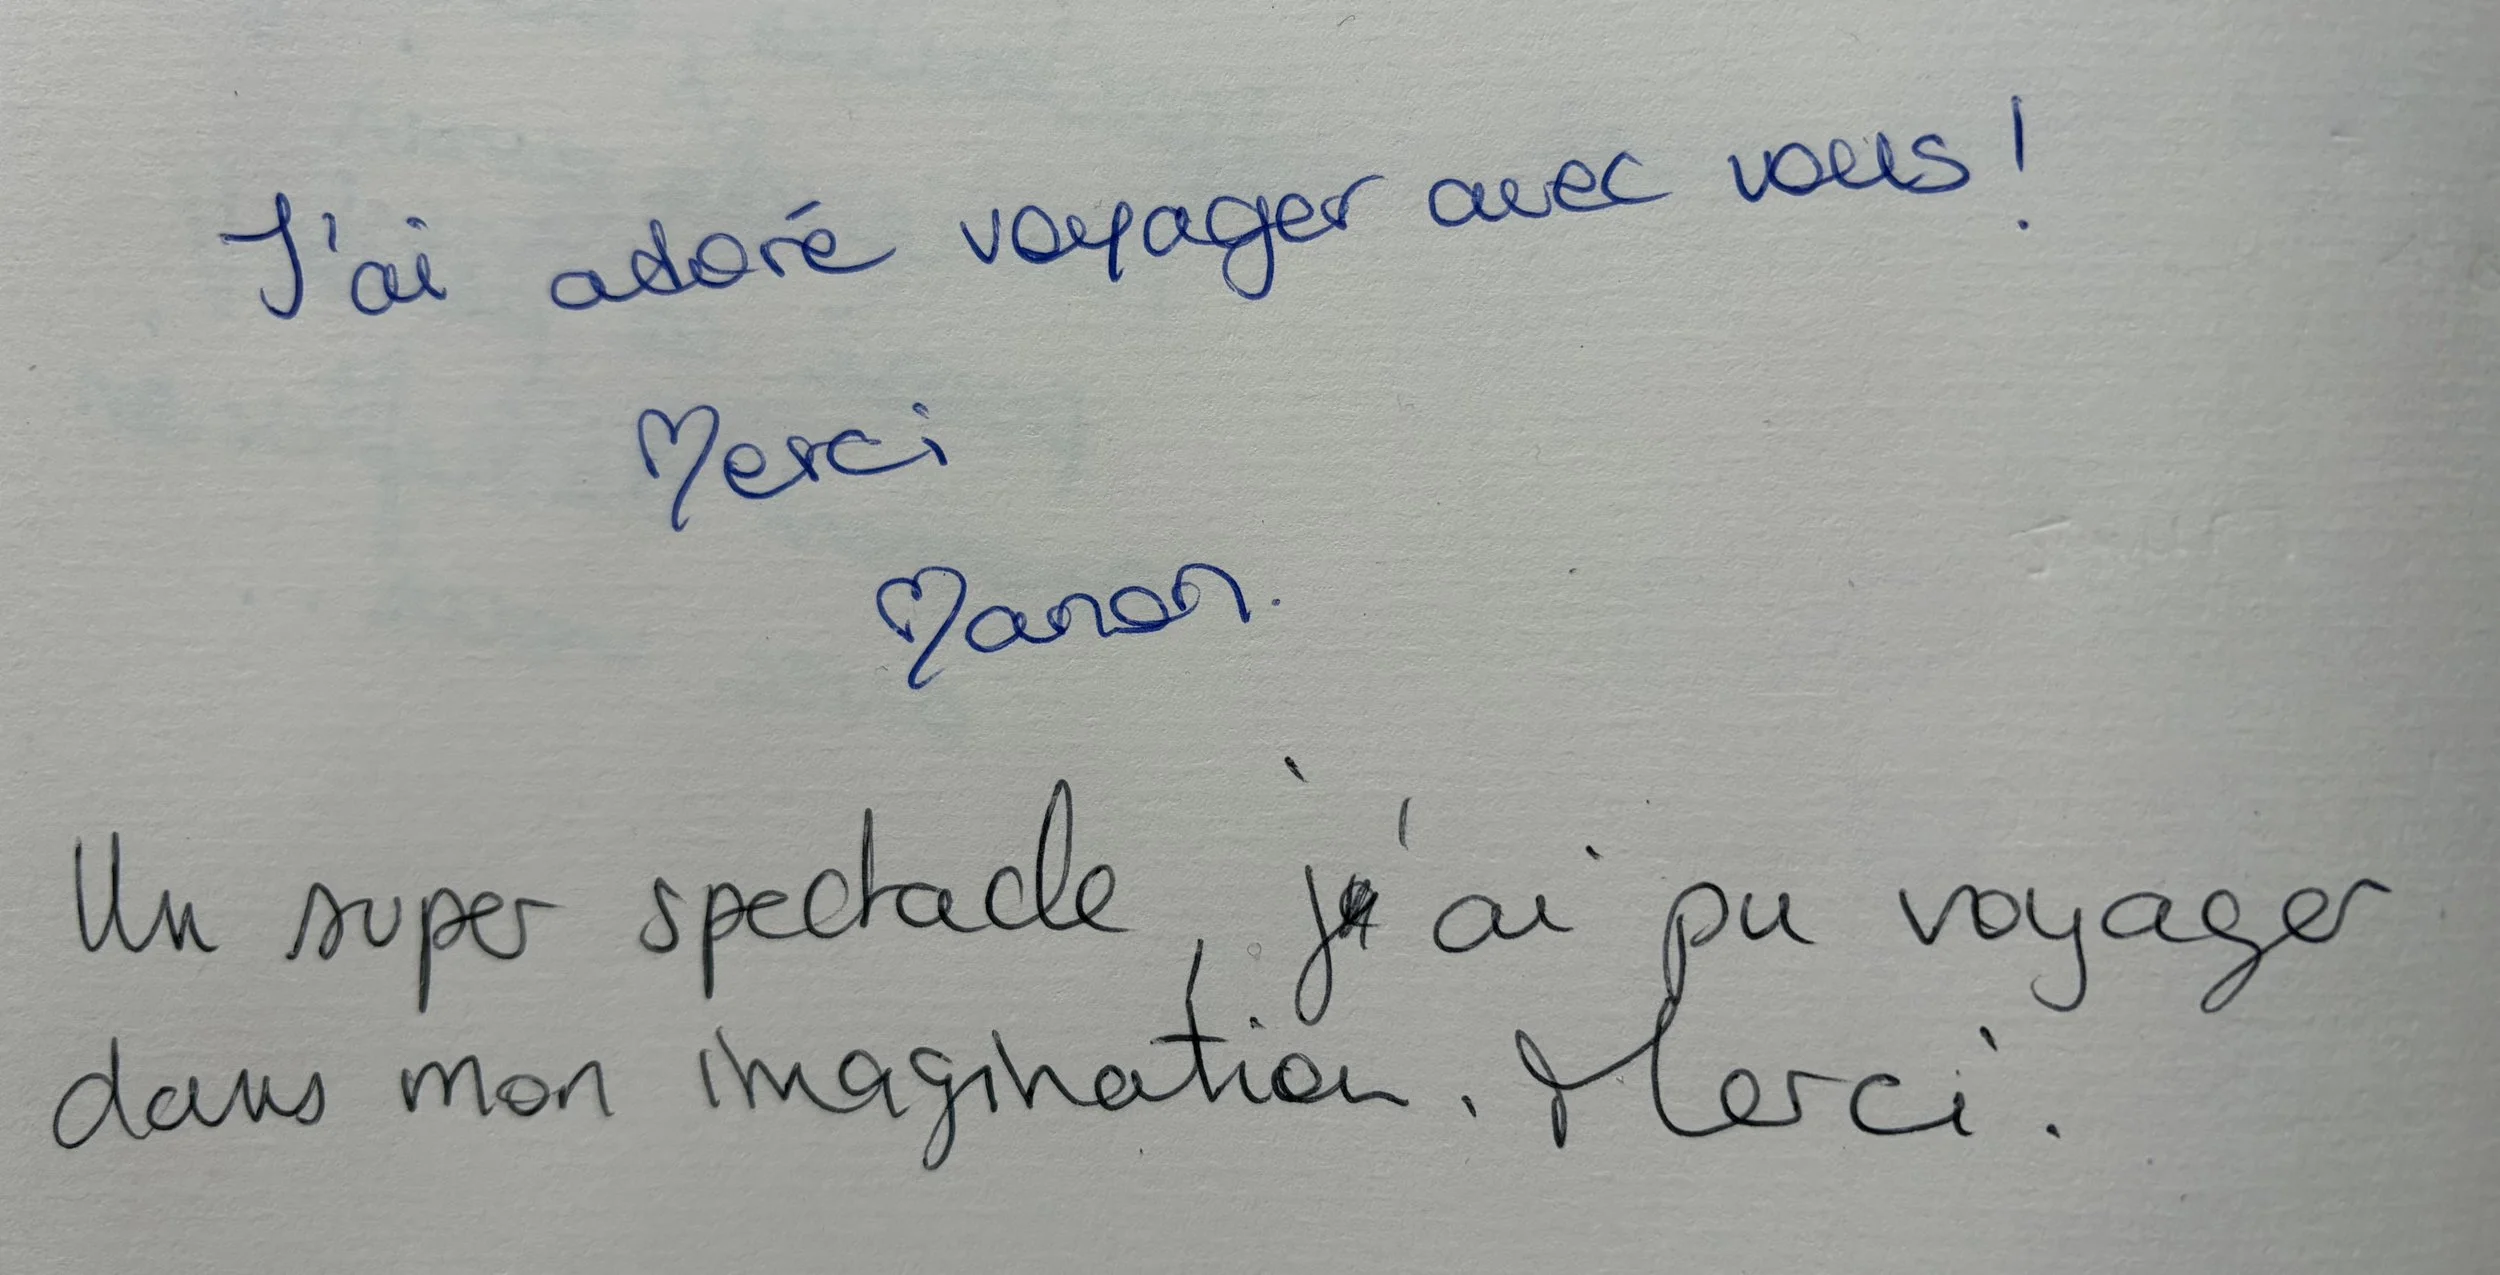 J'ai adoré voyager avec vous !
Merci
Manon.
Un super spectacle, j'ai pu voyager
dans mon imagination. Merci.